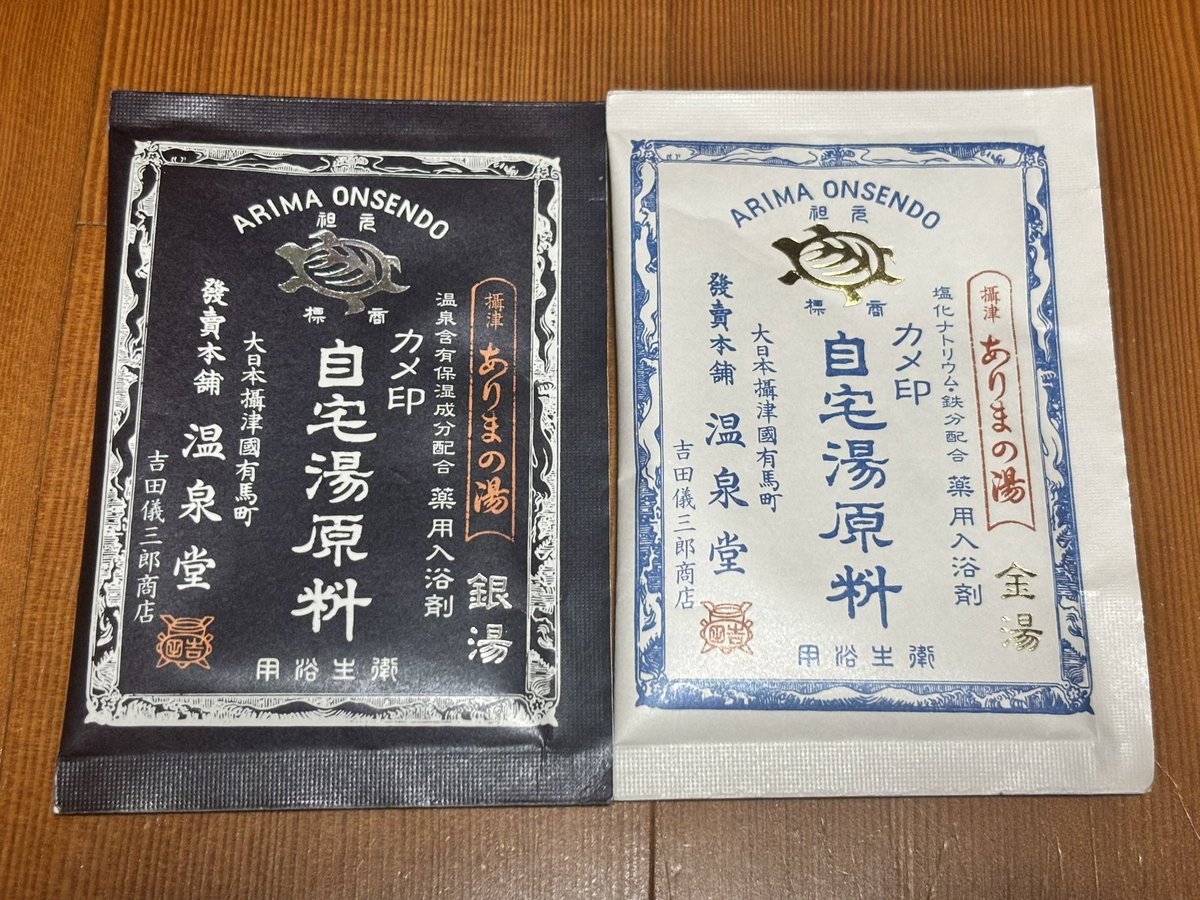 ARIMA ONSENDO
祖元
標商
攝津 ありまの湯
銀湯
温泉含有保湿成分配合 薬用入浴剤
カメ印
自宅湯原料
大日本攝津國有馬町
發賣本舗 温泉堂
吉田儀三郎商店
用浴生衛
ARIMA ONSENDO
祖元
標商
攝津 ありまの湯
金湯
塩化ナトリウム・鉄分配合 薬用入浴剤
カメ印
自宅湯原料
大日本攝津國有馬町
發賣本舗 温泉堂
吉田儀三郎商店
用浴生衛